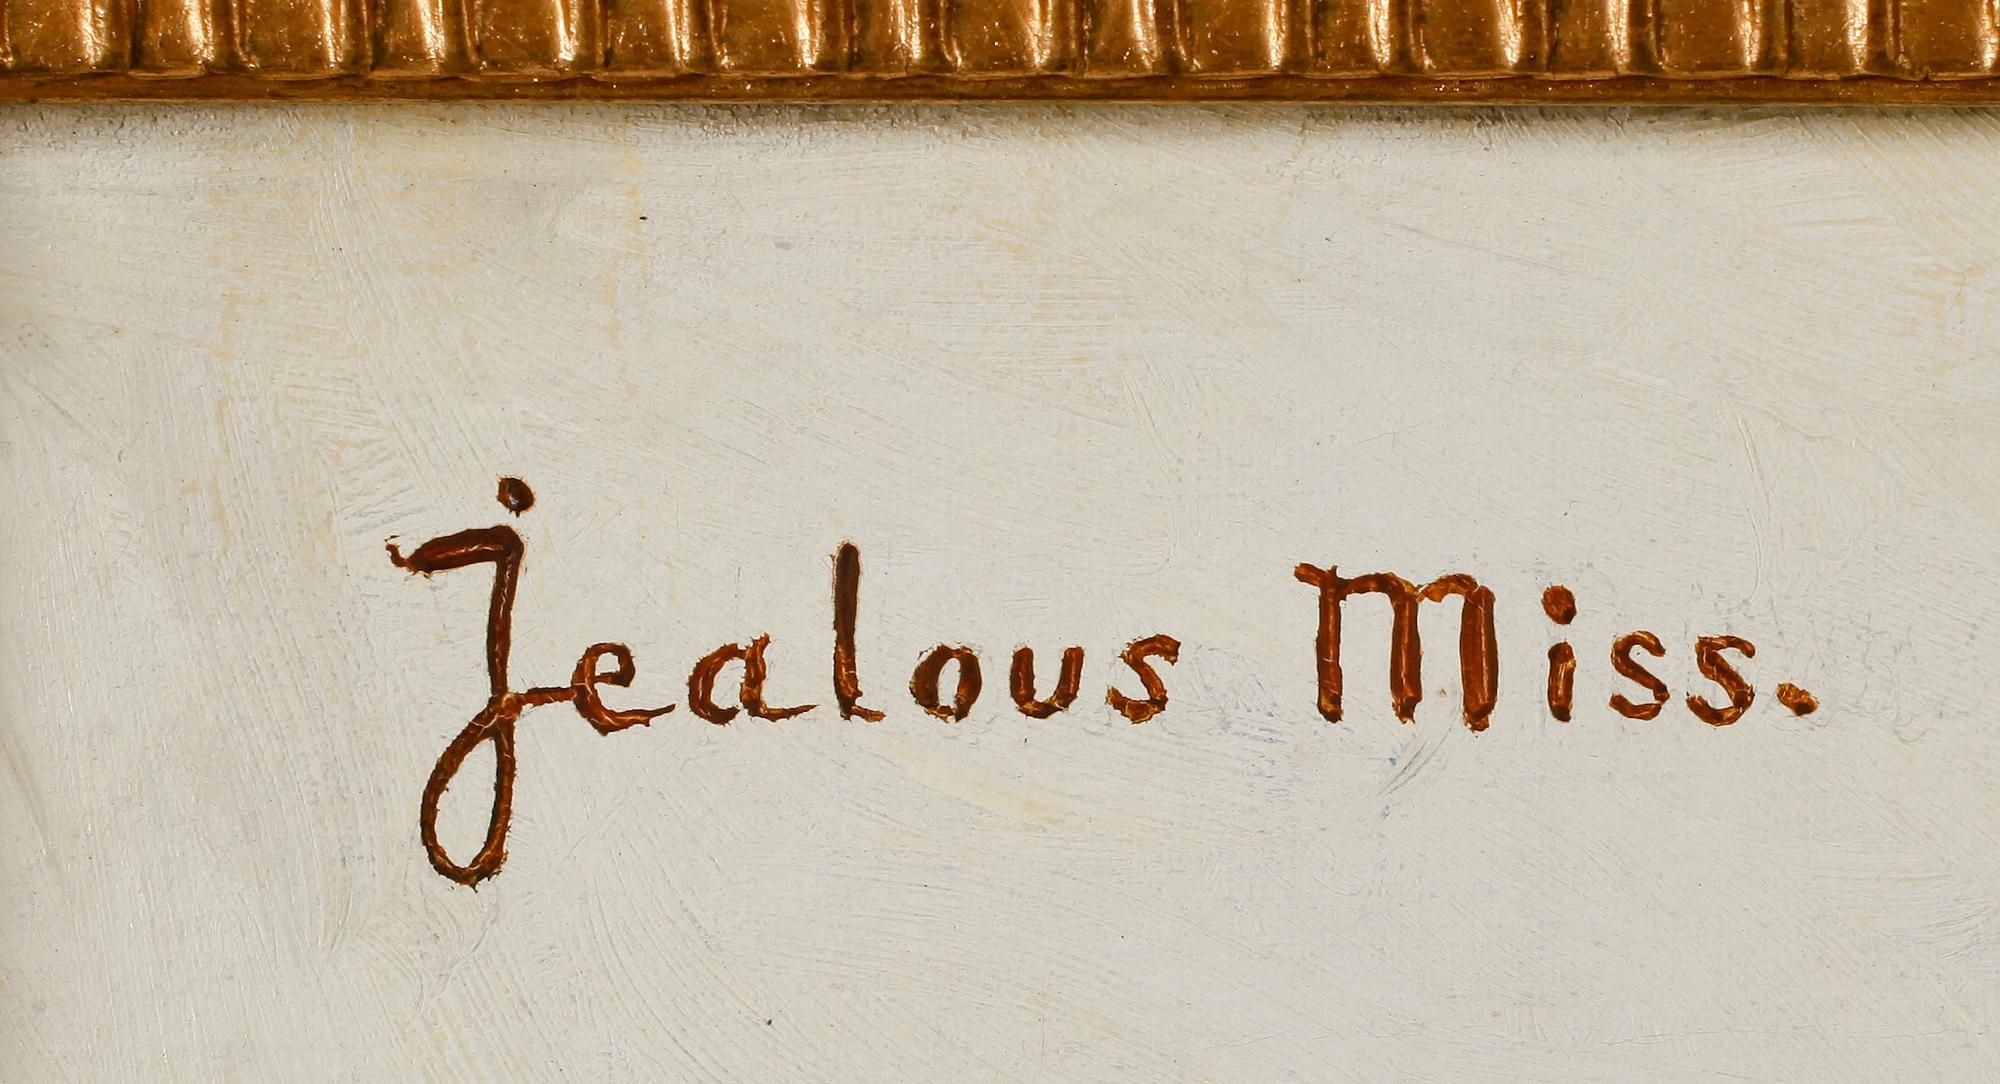 jealous Miss.